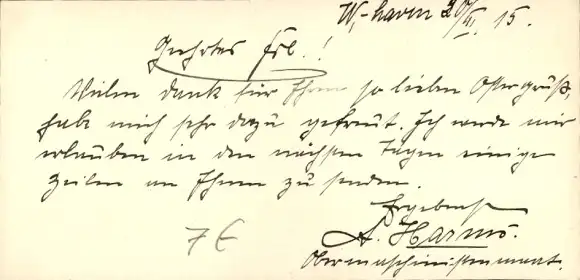 W.-haven 20/IV. 15.
Geehrtes Frl.!
Vielen Dank für Ihren so lieben Ostergruß,
habe mich sehr dazu gefreut. Ich werde mir
erlauben in den nächsten Tagen einige
Zeilen an Ihnen zu senden.
Ergebenst
A. Harms.
Obermaschinistenmaat.
7 €